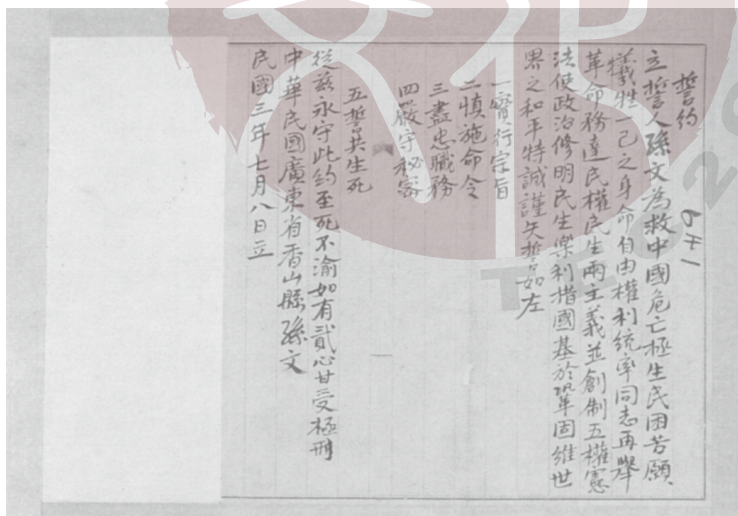 誓約
641
立誓人孫文為救中國危亡拯生民困苦願
犧牲一己之身命自由權利統率同志再舉
革命務達民權民生兩主義並創制五權憲
法使政治修明民生樂利措國基於鞏固維世
界之和平特誠謹矢誓如左
一實行宗旨
二慎施命令
三盡忠職務
四嚴守秘密
五誓共生死
從茲永守此約至死不渝如有貳心甘受極刑
中華民國廣東省香山縣孫文
民國三年七月八日立